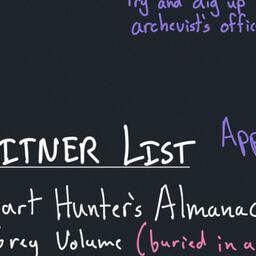 Try and dig up
archevist's offic
App
ITNER LIST
art Hunter's Almanac
Grey Volume (buried in a